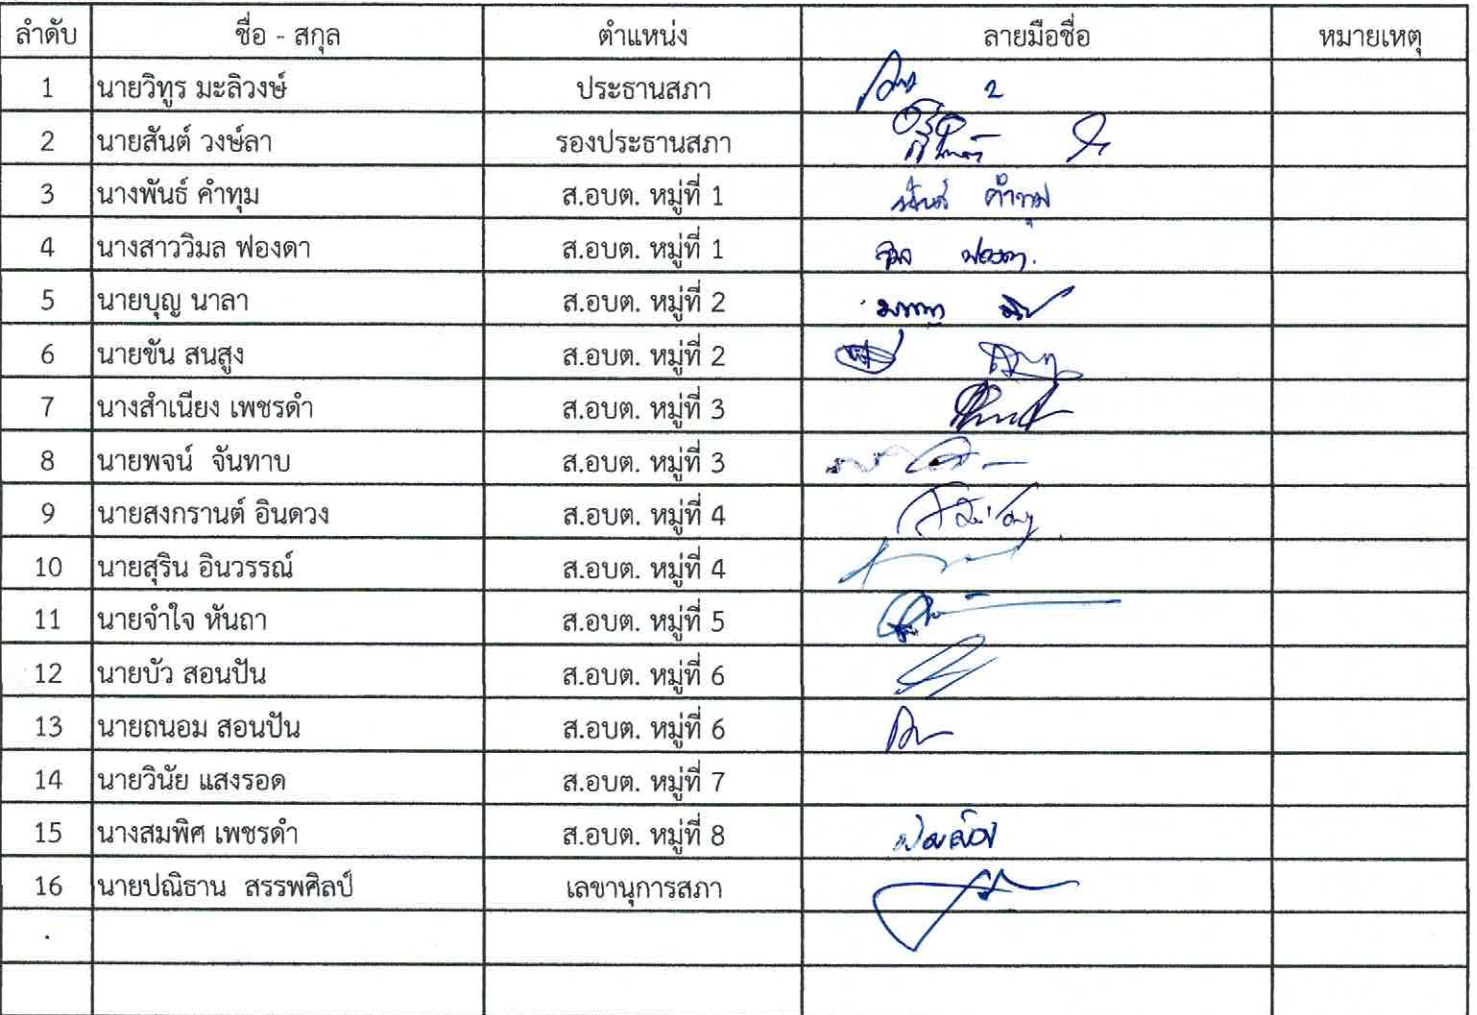 ลำดับ ชื่อ - สกุล ตำแหน่ง ลายมือชื่อ หมายเหตุ
1 นายวิทูร มะลิวงษ์ ประธานสภา
2 นายสันต์ วงษ์ลา รองประธานสภา
3 นางพันธ์ คำทุม ส.อบต. หมู่ที่ 1 พันธ์ คำทุม
4 นางสาววิมล ฟองดา ส.อบต. หมู่ที่ 1
5 นายบุญ นาลา ส.อบต. หมู่ที่ 2
6 นายขัน สนสูง ส.อบต. หมู่ที่ 2
7 นางสำเนียง เพชรดำ ส.อบต. หมู่ที่ 3
8 นายพจน์ จันทาบ ส.อบต. หมู่ที่ 3
9 นายสงกรานต์ อินดวง ส.อบต. หมู่ที่ 4
10 นายสุริน อินวรรณ์ ส.อบต. หมู่ที่ 4
11 นายจำใจ หันถา ส.อบต. หมู่ที่ 5
12 นายบัว สอนปัน ส.อบต. หมู่ที่ 6
13 นายถนอม สอนปัน ส.อบต. หมู่ที่ 6
14 นายวินัย แสงรอด ส.อบต. หมู่ที่ 7
15 นางสมพิศ เพชรดำ ส.อบต. หมู่ที่ 8
16 นายปณิธาน สรรพศิลป์ เลขานุการสภา